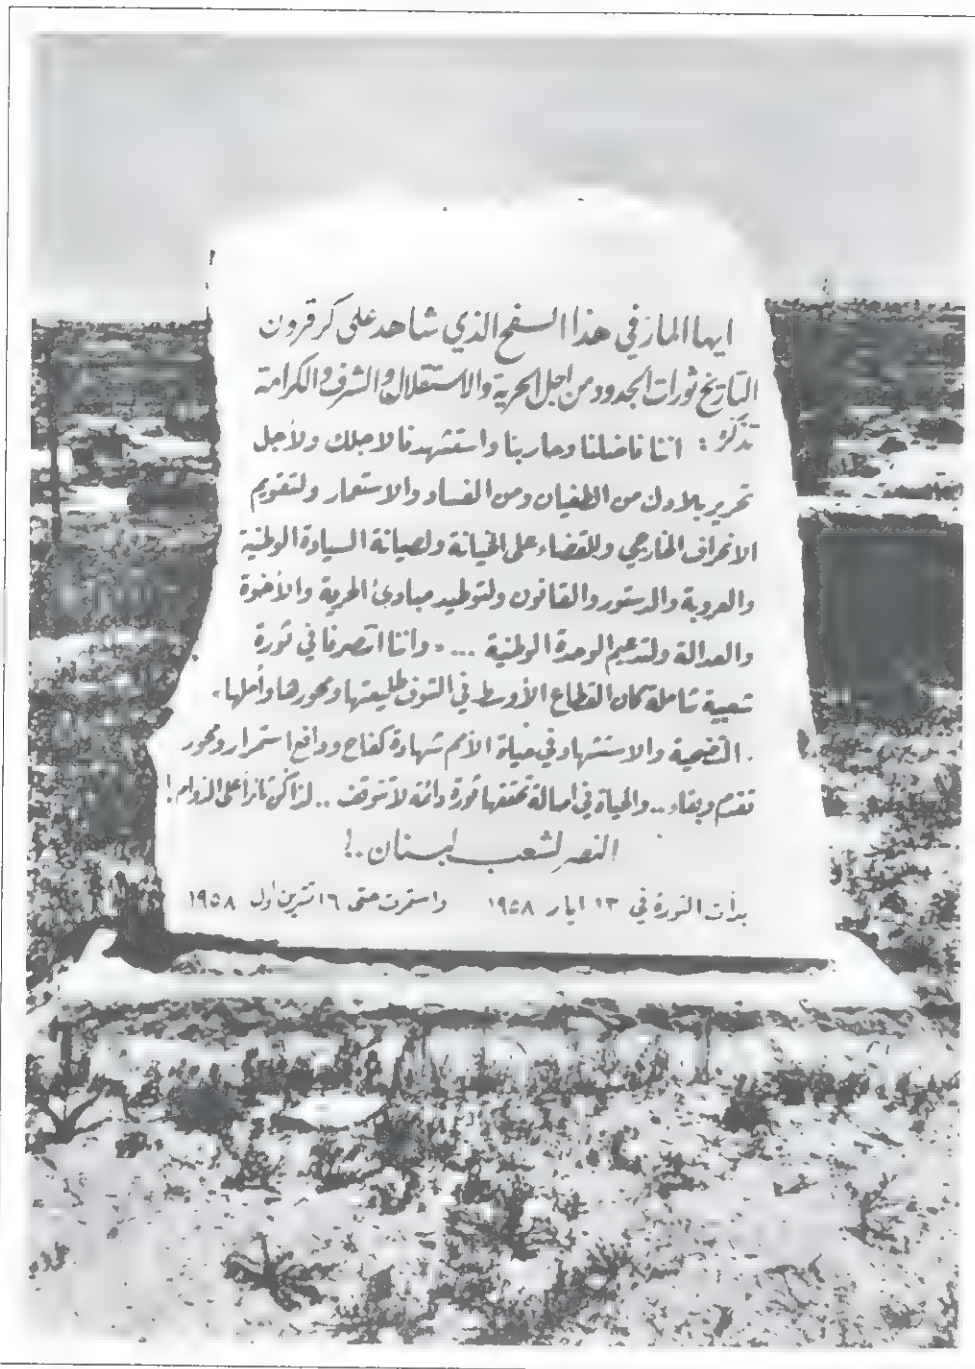 ايها المار في هذا السفح الذي شاهد على كر قرون
التاريخ ثورات الجدود من اجل الحرية والاستقلال والشرف والكرامة
تذكّر : اننا ناضلنا وحاربنا واستشهدنا لاجلك ولأجل
تحرير بلادك من الطغيان ومن الفساد والاستعمار ولتقويم
الانحراف الخارجي وللقضاء على الخيانة ولصيانة السيادة الوطنية
والعروبة والدستور والقانون ولتوطيد مبادئ الحرية والأخوة
والعدالة ولتدعيم الوحدة الوطنية ... « واننا انتصرنا في ثورة
شعبية شاملة كان القطاع الأوسط في الشوف طليعتها ومحورها وأملها »
. التضحية والاستشهاد في حياة الأمم شهادة كفاح ودافع استمرار ومحور
تقدم وبقاء .. والحياة في اصالة تحققها ثورة دائمة لا تتوقف .. لذا كن ثائراً على الدوام !
النصر لشعب لبنان .. !
بدأت الثورة في ١٣ ايار ١٩٥٨ واستمرت حتى ١٦ تشرين اول ١٩٥٨